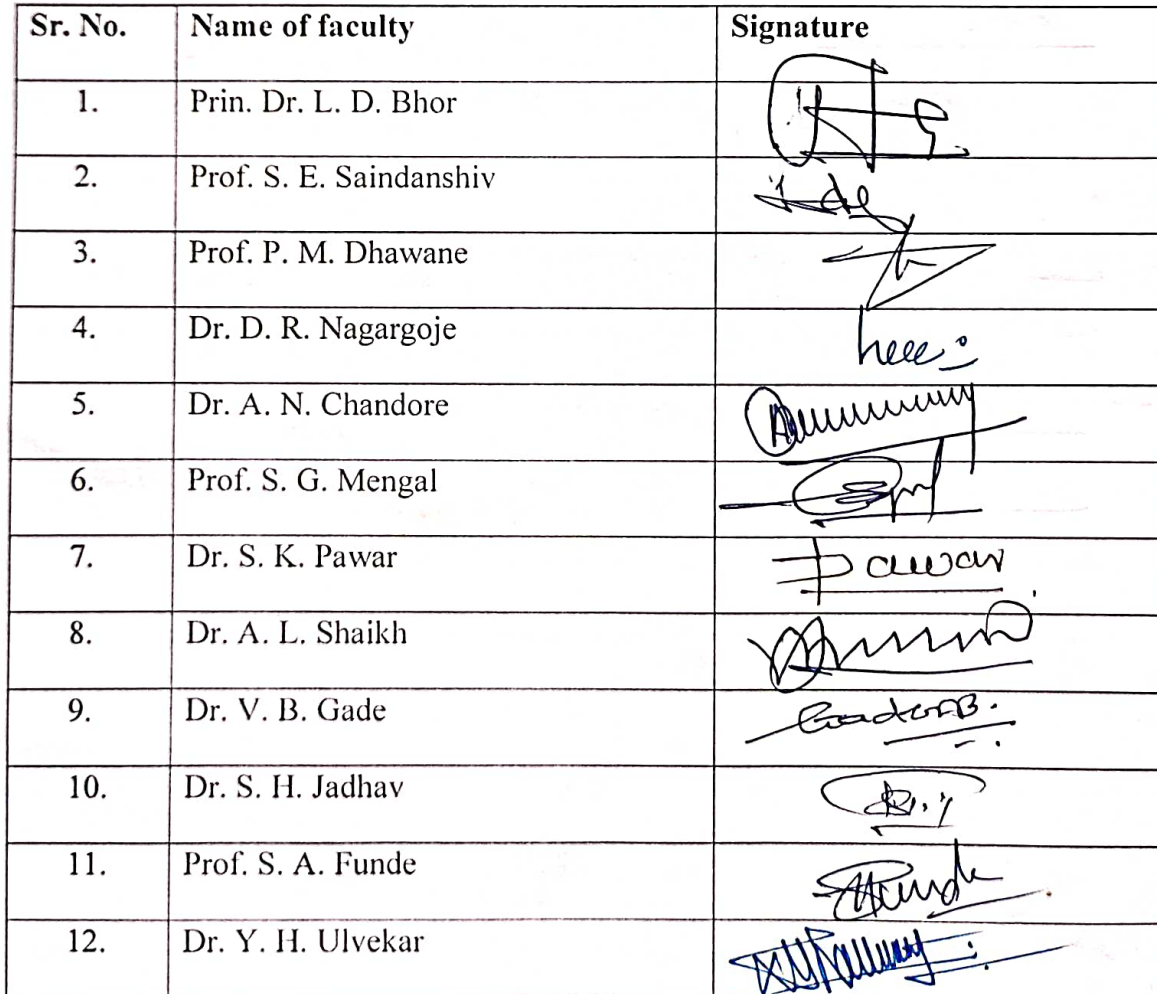 Sr. No. Name of faculty Signature
1. Prin. Dr. L. D. Bhor
2. Prof. S. E. Saindanshiv
3. Prof. P. M. Dhawane
4. Dr. D. R. Nagargoje
5. Dr. A. N. Chandore
6. Prof. S. G. Mengal
7. Dr. S. K. Pawar Pawar
8. Dr. A. L. Shaikh
9. Dr. V. B. Gade
10. Dr. S. H. Jadhav
11. Prof. S. A. Funde
12. Dr. Y. H. Ulvekar